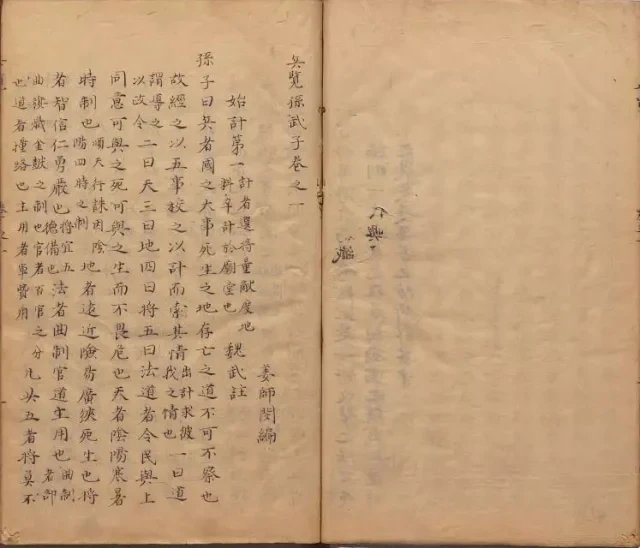 兵覽孫武子卷之一
始計第一 計者選將量敵度地料卒計於廟堂也 魏武註
姜師閔編
孫子曰兵者國之大事死生之地存亡之道不可不察也
故經之以五事校之以計而索其情 出計求彼我之情也 一曰道
謂導之以政令 二曰天三曰地四曰將五曰法道者令民與上
同意可與之死可與之生而不畏危也天者陰陽寒暑
時制也 順天行誅因陰陽四時之制 地者遠近險易廣狹死生也將
者智信仁勇嚴也 將宜五德備也 法者曲制官道主用也 曲制者部
曲旗幟金鼓之制也官者百官之分也道者糧路也主用者軍費用 凡此五者將莫不